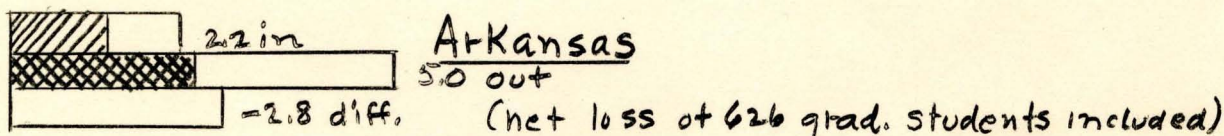 2.2 in
Arkansas
5.0 out
-2.8 diff.
(net loss of 626 grad. students included)